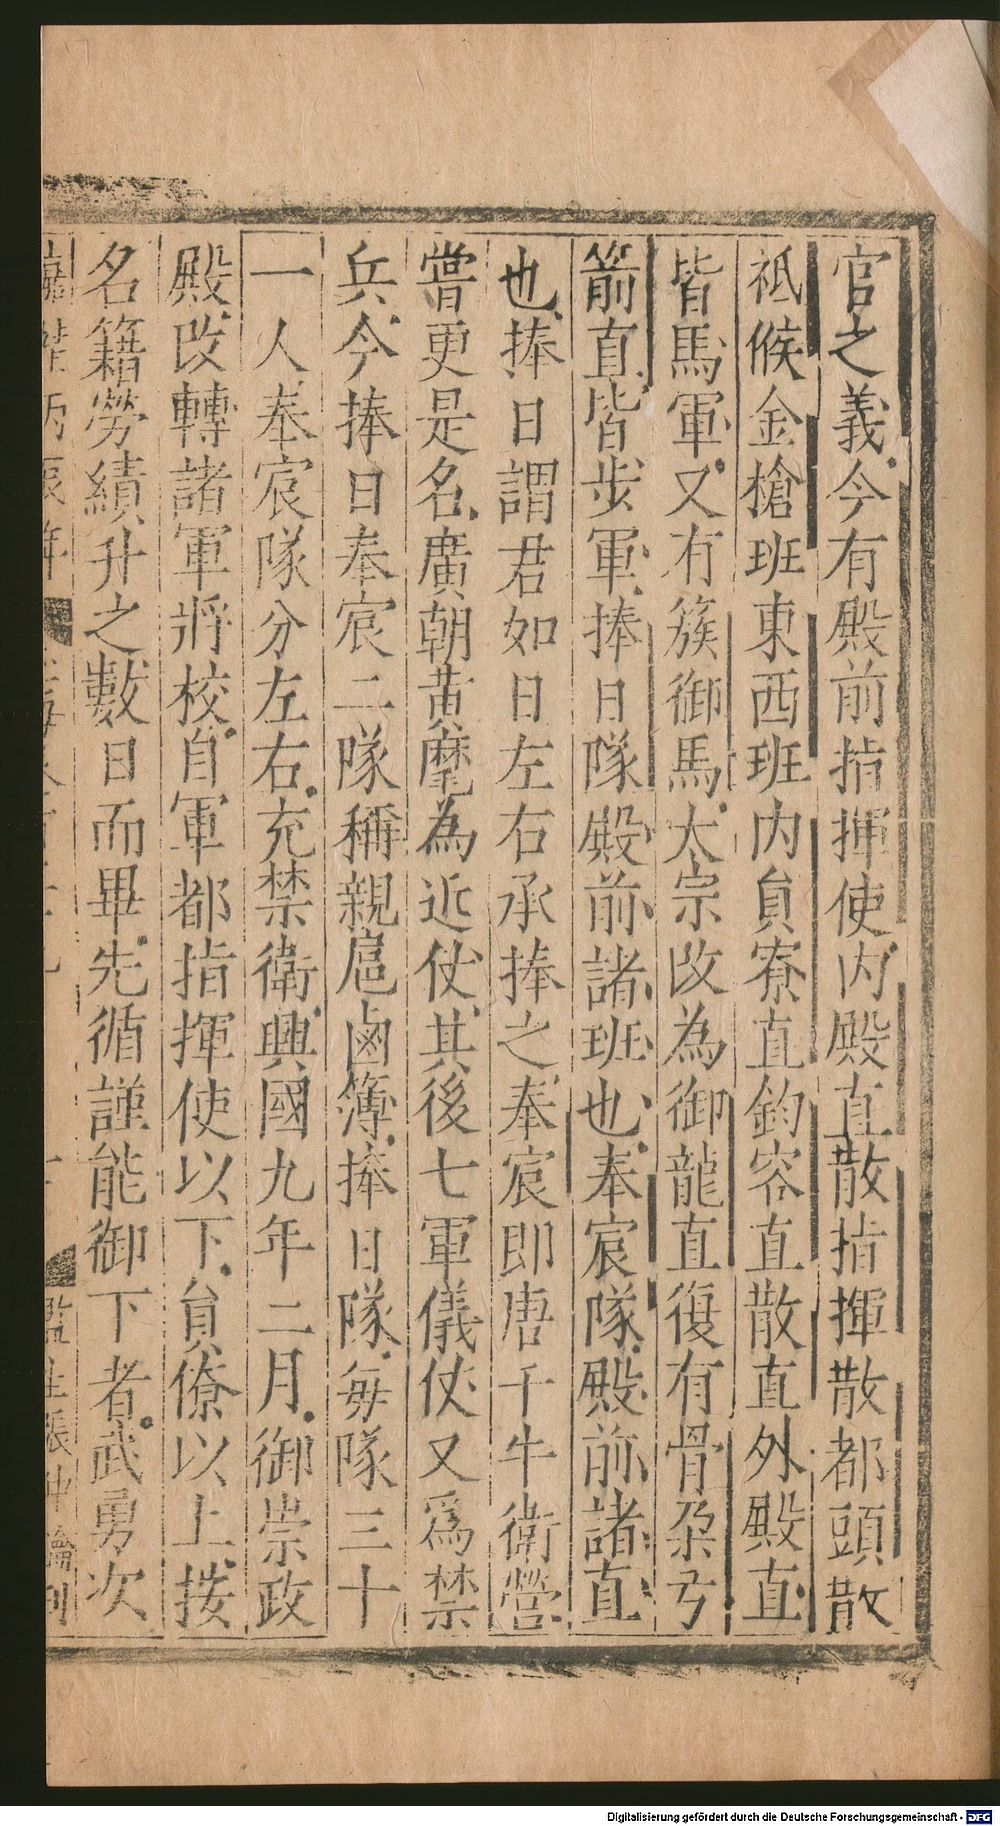 官之義今有殿前指揮使内殿直散指揮散都頭散
祗候金槍班東西班内員寮直鈞容直散直外殿直
皆馬軍又有簇御馬太宗改為御龍直復有骨朶弓
箭直皆步軍捧日隊殿前諸班也奉宸隊殿前諸直
也捧日謂君如日左右承捧之奉宸即唐千牛衛營
嘗更是名廣朝黄麾為近仗其後七軍儀仗又爲禁
兵今捧日奉宸二隊稱親扈鹵簿捧日隊毎隊三十
一人奉宸隊分左右充禁衛興國九年二月御崇政
殿改轉諸軍將校自軍都指揮使以下員僚以上按
名籍勞績升之數日而畢先循謹能御下者武勇次
Digitalisierung gefördert durch die Deutsche Forschungsgemeinschaft - DFG